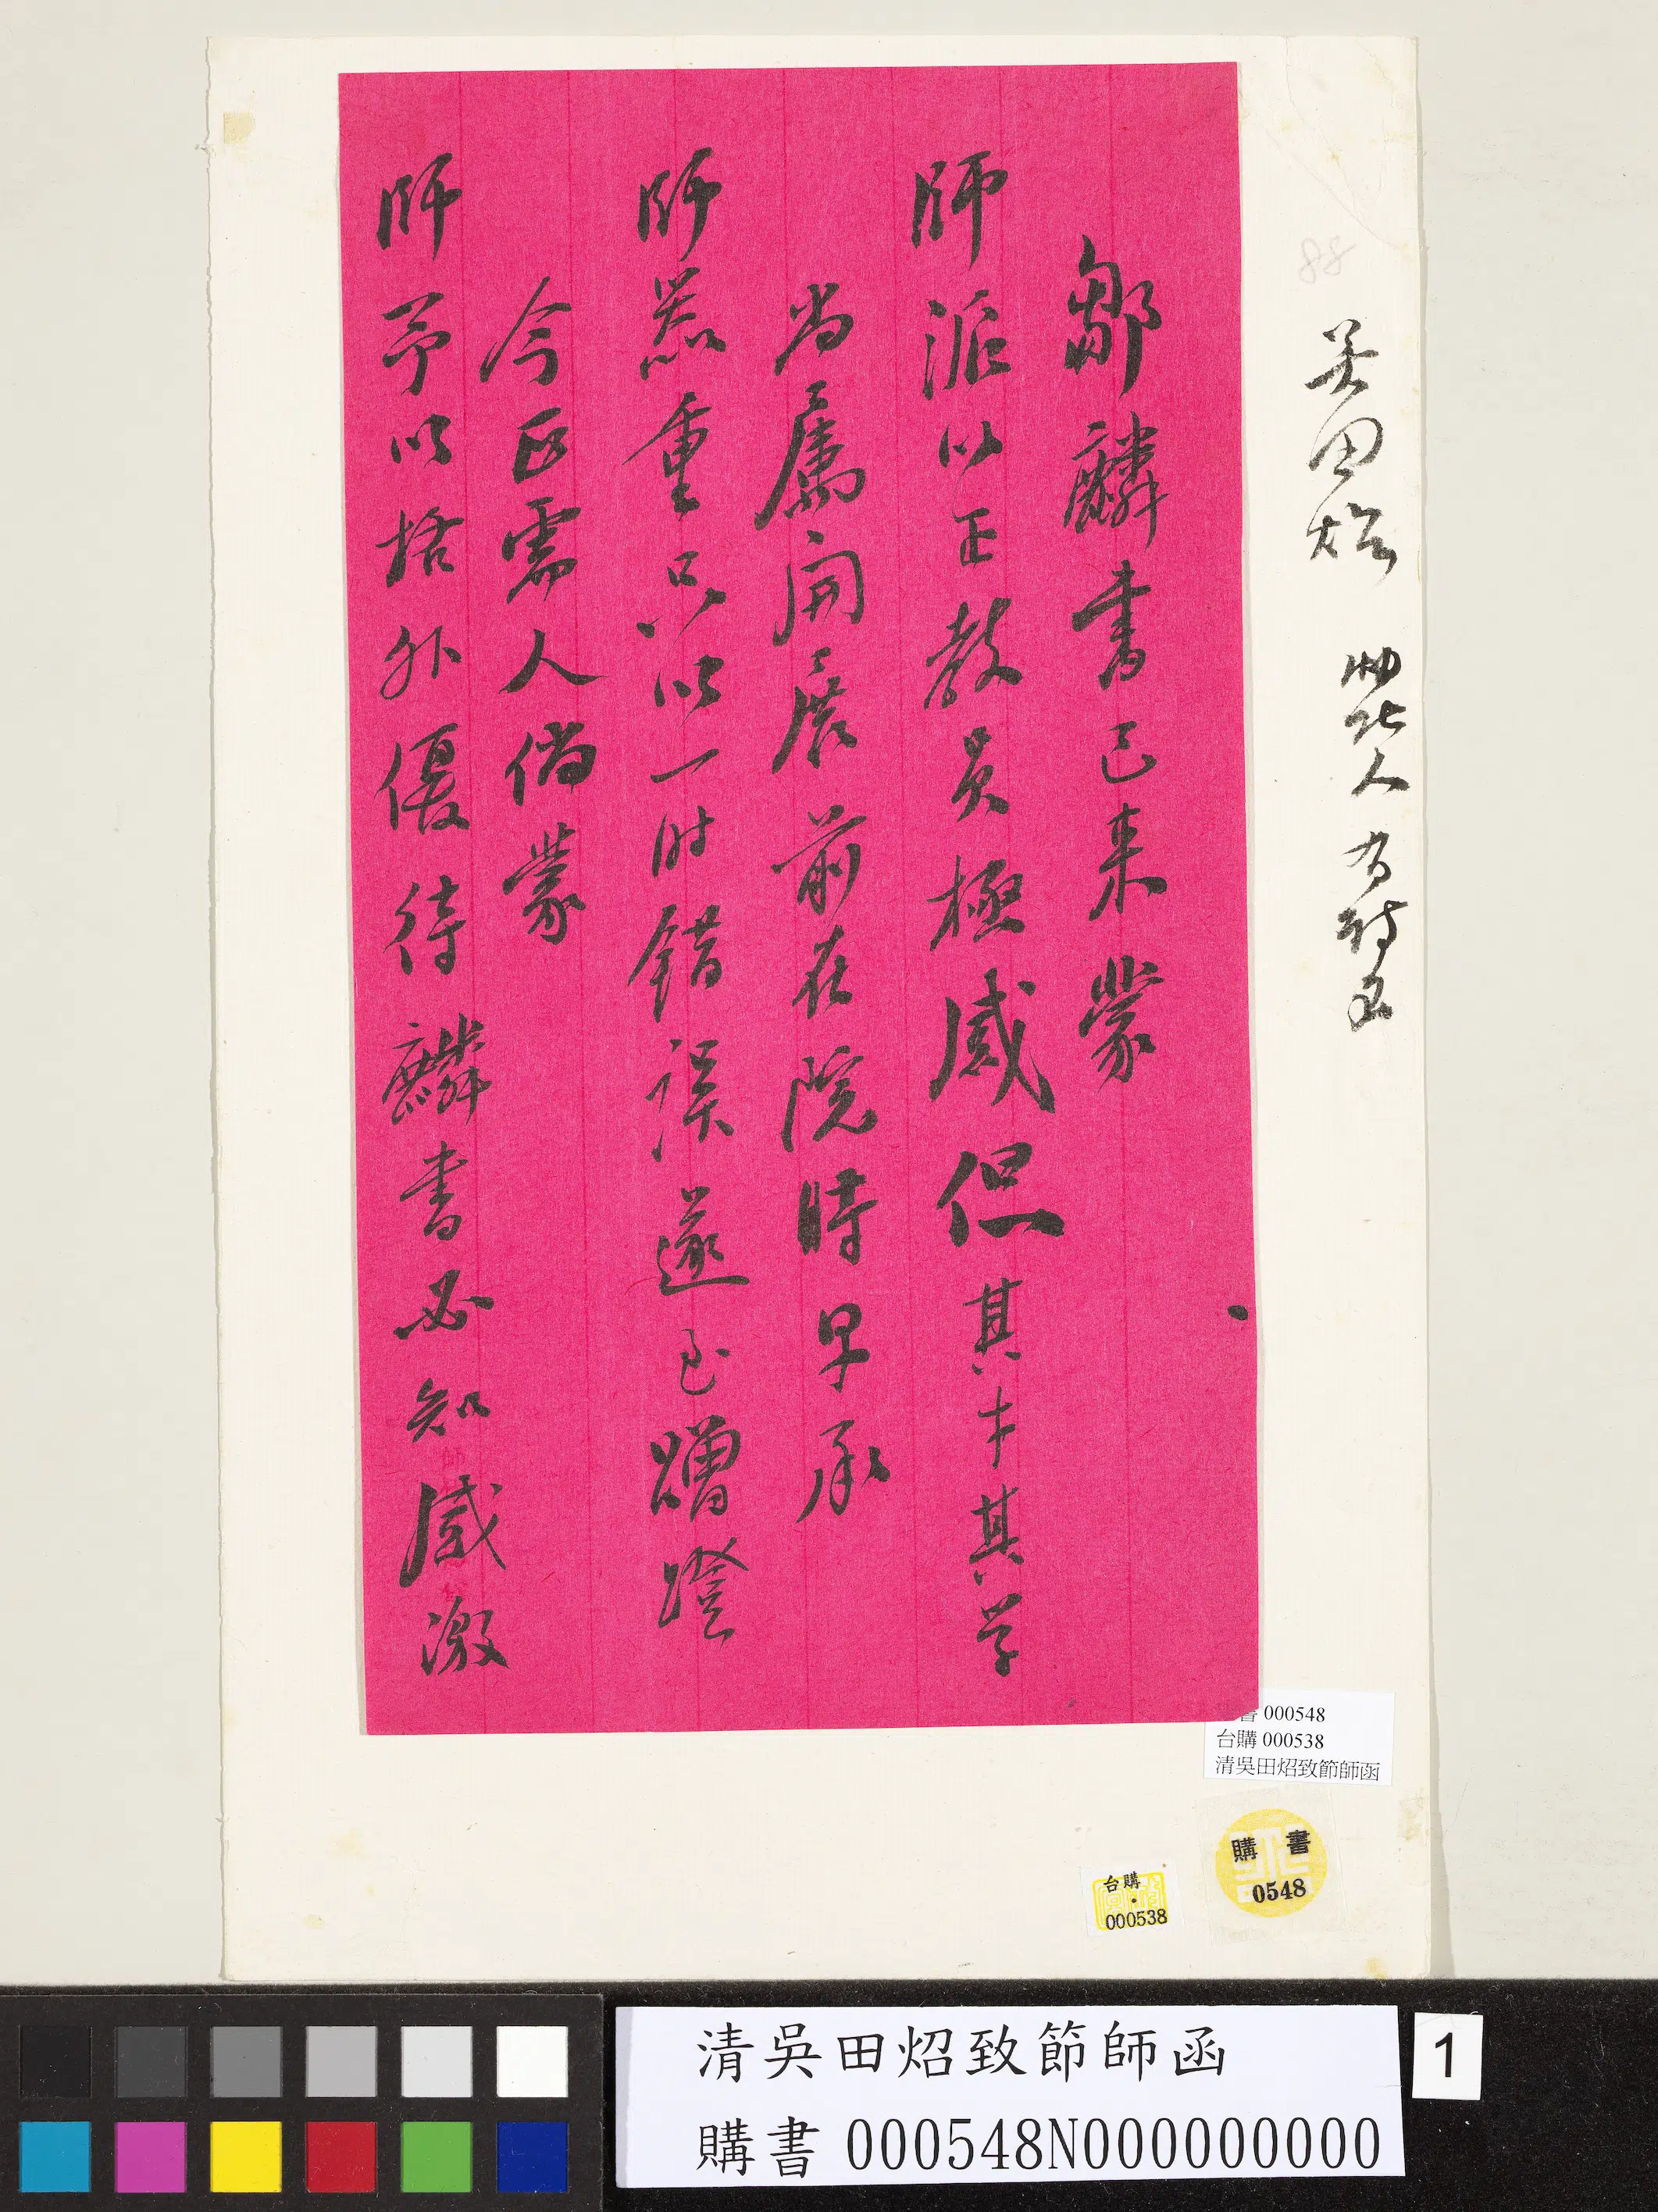 88
吳田炤 湖北人 有詩名
鄒麟書已來蒙
師派以正教員極感但其才其學
尚屬開展前在院時早承
師器重只以一時錯誤遂至蹭蹬
今正需人倘蒙
師予以格外優待麟書必知感激
書 000548
台購 000538
清吳田炤致節師函
購書
0548
台購
000538
清吳田炤致節師函
購書 000548N000000000
1